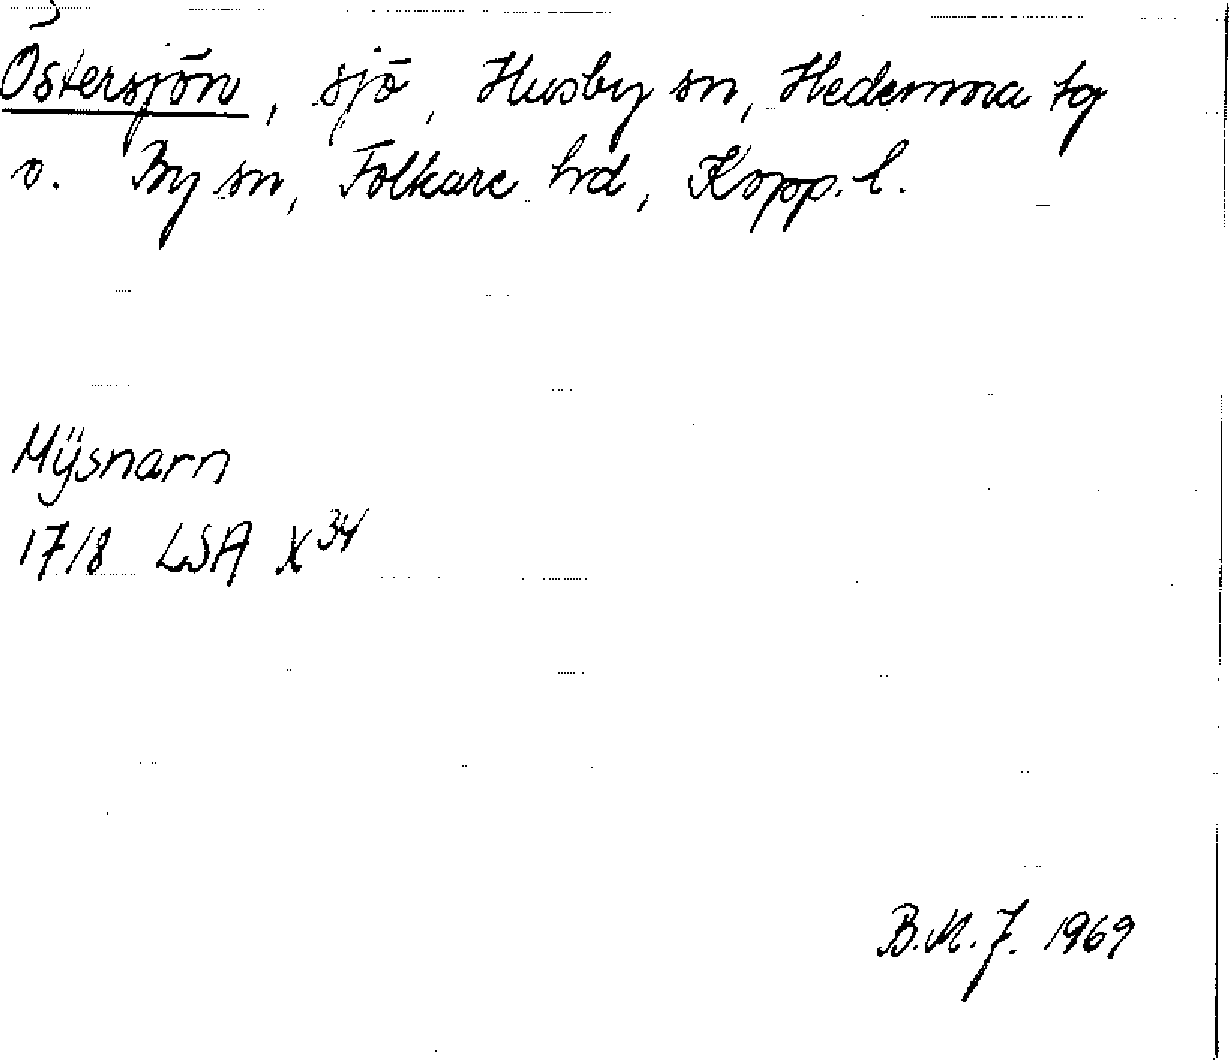 Östersjön, sjö, Husby sn, Hedemora tg
o. By sn, Folkare hd, Kopp. l.
Mÿsnarn
1718 LSA X34
B.M.J. 1969